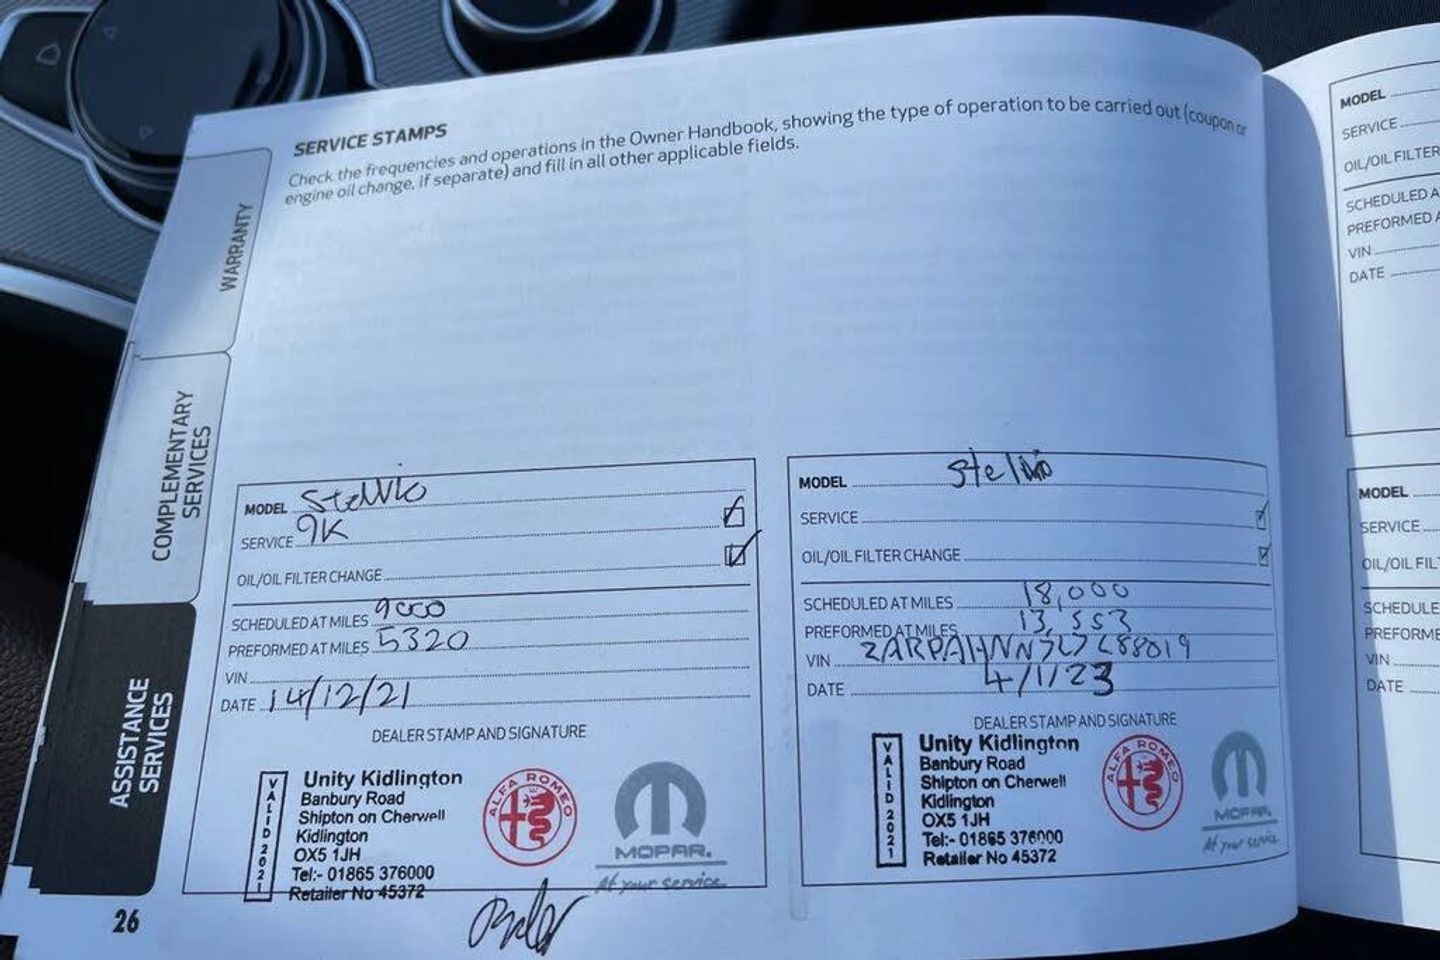 SERVICE STAMPS
Check the frequencies and operations in the Owner Handbook, showing the type of operation to be carried out (coupon or
engine oil change, if separate) and fill in all other applicable fields.
WARRANTY
COMPLEMENTARY
SERVICES
ASSISTANCE
SERVICES
26
MODEL Stelvio
SERVICE 9K
OIL/OIL FILTER CHANGE
SCHEDULED AT MILES 9000
PREFORMED AT MILES 5320
VIN
DATE 14/12/21
DEALER STAMP AND SIGNATURE
VALID 2021
Unity Kidlington
Banbury Road
Shipton on Cherwell
Kidlington
OX5 1JH
Tel:- 01865 376000
Retailer No 45372
ALFA ROMEO
MOPAR.
At your service
MODEL Stelvio
SERVICE
OIL/OIL FILTER CHANGE
SCHEDULED AT MILES 18,000
PREFORMED AT MILES 13,553
VIN
DATE 4/1/23
DEALER STAMP AND SIGNATURE
VALID 2021
Unity Kidlington
Banbury Road
Shipton on Cherwell
Kidlington
OX5 1JH
Tel:- 01865 376000
Retailer No 45372
ALFA ROMEO
MOPAR.
At your service
MODEL
SERVICE
OIL/OIL FILTER
SCHEDULED A
PREFORMED A
VIN
DATE
MODEL
SERVICE
OIL/OIL FIL
SCHEDULE
PREFORME
VIN
DATE